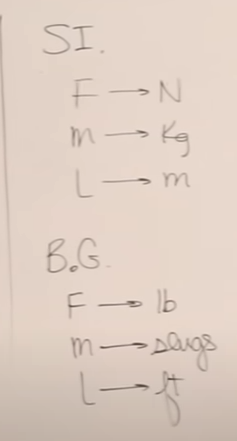 SI.
F → N
m → Kg
L → m
B.G.
F → lb
m → slugs
L → ft